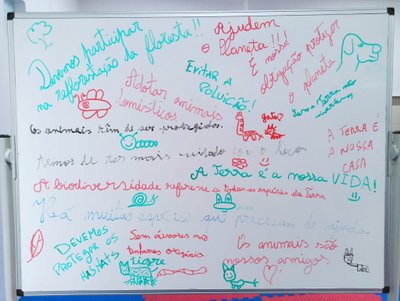 Devemos participar
na reflorestação da floresta!!
Ajudem
o Planeta!!!
É nossa
obrigação proteger
o planeta
EVITAR A
POLUIÇÃO!
Adotar animais
domésticos
Sem a Terra não
gato
Os animais têm de ser protegidos.
A TERRA É
A NOSSA
CASA
temos de ter mais cuidado com o
A Terra é a nossa VIDA!
A biodiversidade refere-se a todas as espécies da Terra
Há muitas espécies que precisam de ajuda.
DEVEMOS
PROTEGER OS
HABITATS
Sem árvores não
tínhamos oxigénio
tigre
Os animais são
nossos amigos